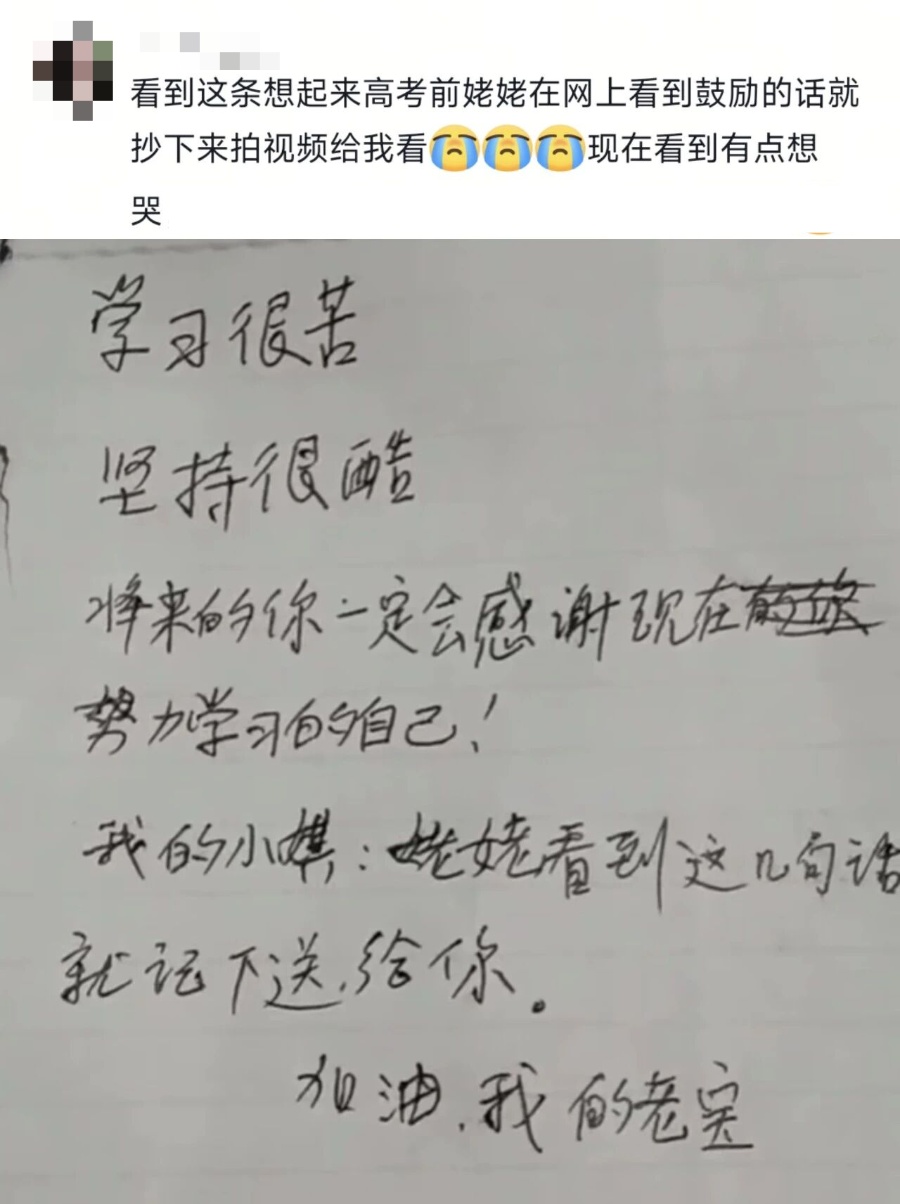 看到这条想起来高考前姥姥在网上看到鼓励的话就
抄下来拍视频给我看😭😭😭现在看到有点想
哭
学习很苦
坚持很酷
将来的你一定会感谢现在的你
努力学习的自己！
我的小娸：姥姥看到这几句话
就记下送给你。
加油，我的老宝